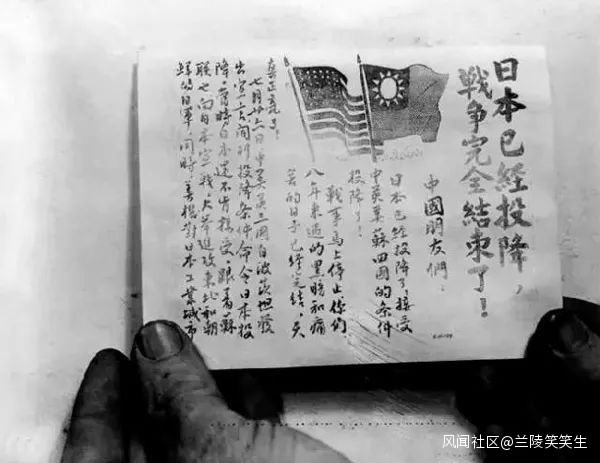 日本已經投降，
戰爭完全結束了！
中國朋友們：
日本已經投降了，接受
中英美蘇四國的条件
投降了！
戰事馬上停止你們
八年来過的黑暗和痛
苦的日子已經完結，天
真正亮了！
七月廿六日中美英三國自波茨坦發
出宣言開列投降条件命令日本投
降，當時日本還不肯接受，跟着蘇
联也向日本宣戰，大举進攻東北和朝
鮮的日軍，同時美機對日本工業城市
风闻社区@兰陵笑笑生